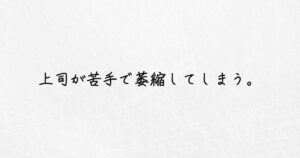 上司が苦手で萎縮してしまう。